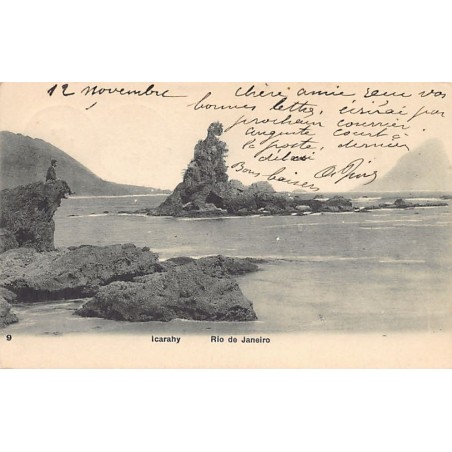 12 novembre
chère amie reçu vos
bonnes lettre, écirai par
prochain courrier
court à
la poste, dernier
délai
Bons baisers
9
Icarahy Rio de Janeiro